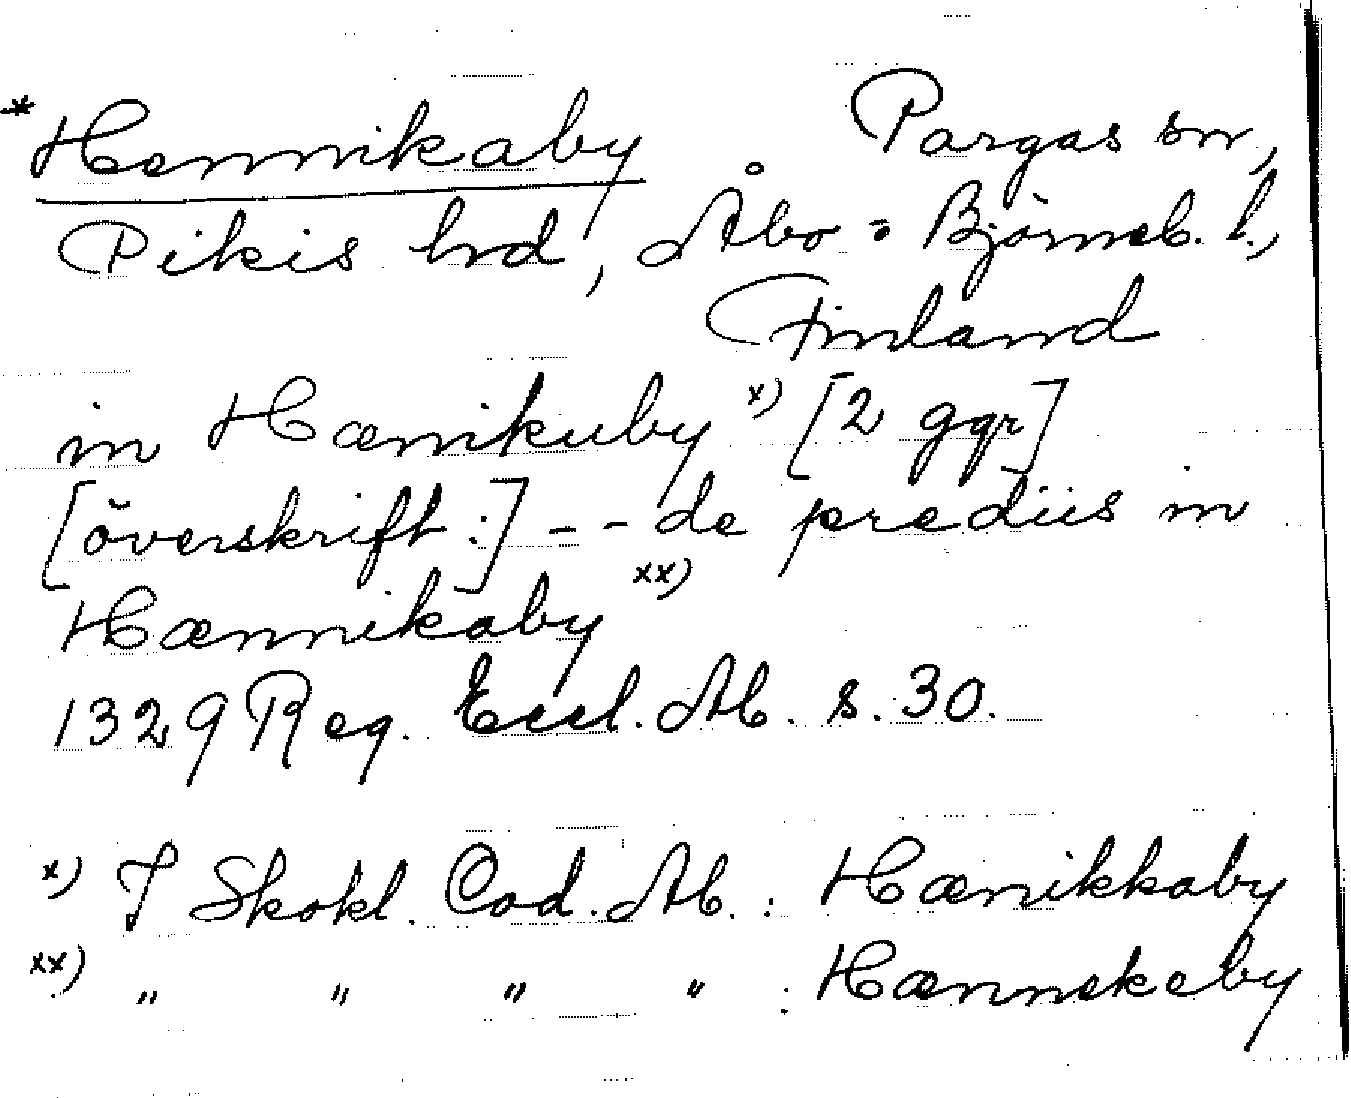 * Hennikaby Pargas sn,
Pikis hd, Åbo=Björneb. l.,
Finland
in Hænikuby x) [2 ggr]
[överskrift:] - - de prediis in
Hænnikaby xx)
1329 Reg. Eccl. Ab. s. 30.
x) I Skokl. Cod. Ab. : Hænikkaby
xx) " " " " : Hænnekeby